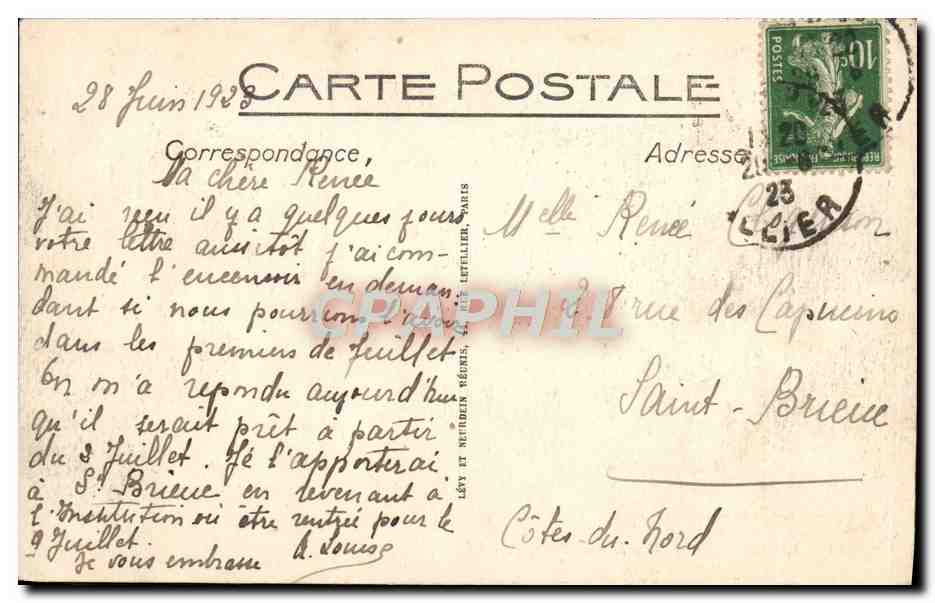 CARTE POSTALE
28 Juin 1923
Correspondance
Adresse
10c
POSTES
REPUBLIQUE FRANÇAISE
23
LLIER
Ma chère Renée
J'ai reçu il y a quelques jours
votre lettre aussitôt j'ai com-
mandé l'encensoir en deman-
dant si nous pourrions l'avoir
dans les premiers de Juillet
On m'a repondu aujourd'hui
qu'il serait prêt à partir
du 3 Juillet. Je l'apporterai
à St Brieuc en revenant à
l'Institution où être rentrée pour le
9 Juillet.
Je vous embrasse
A. Louise
LÉVY ET NEURDEIN RÉUNIS, RUE LETELLIER, PARIS
Melle Renée
rue des Capucins
Saint-Brieuc
Côtes-du-Nord
CPAPHIL